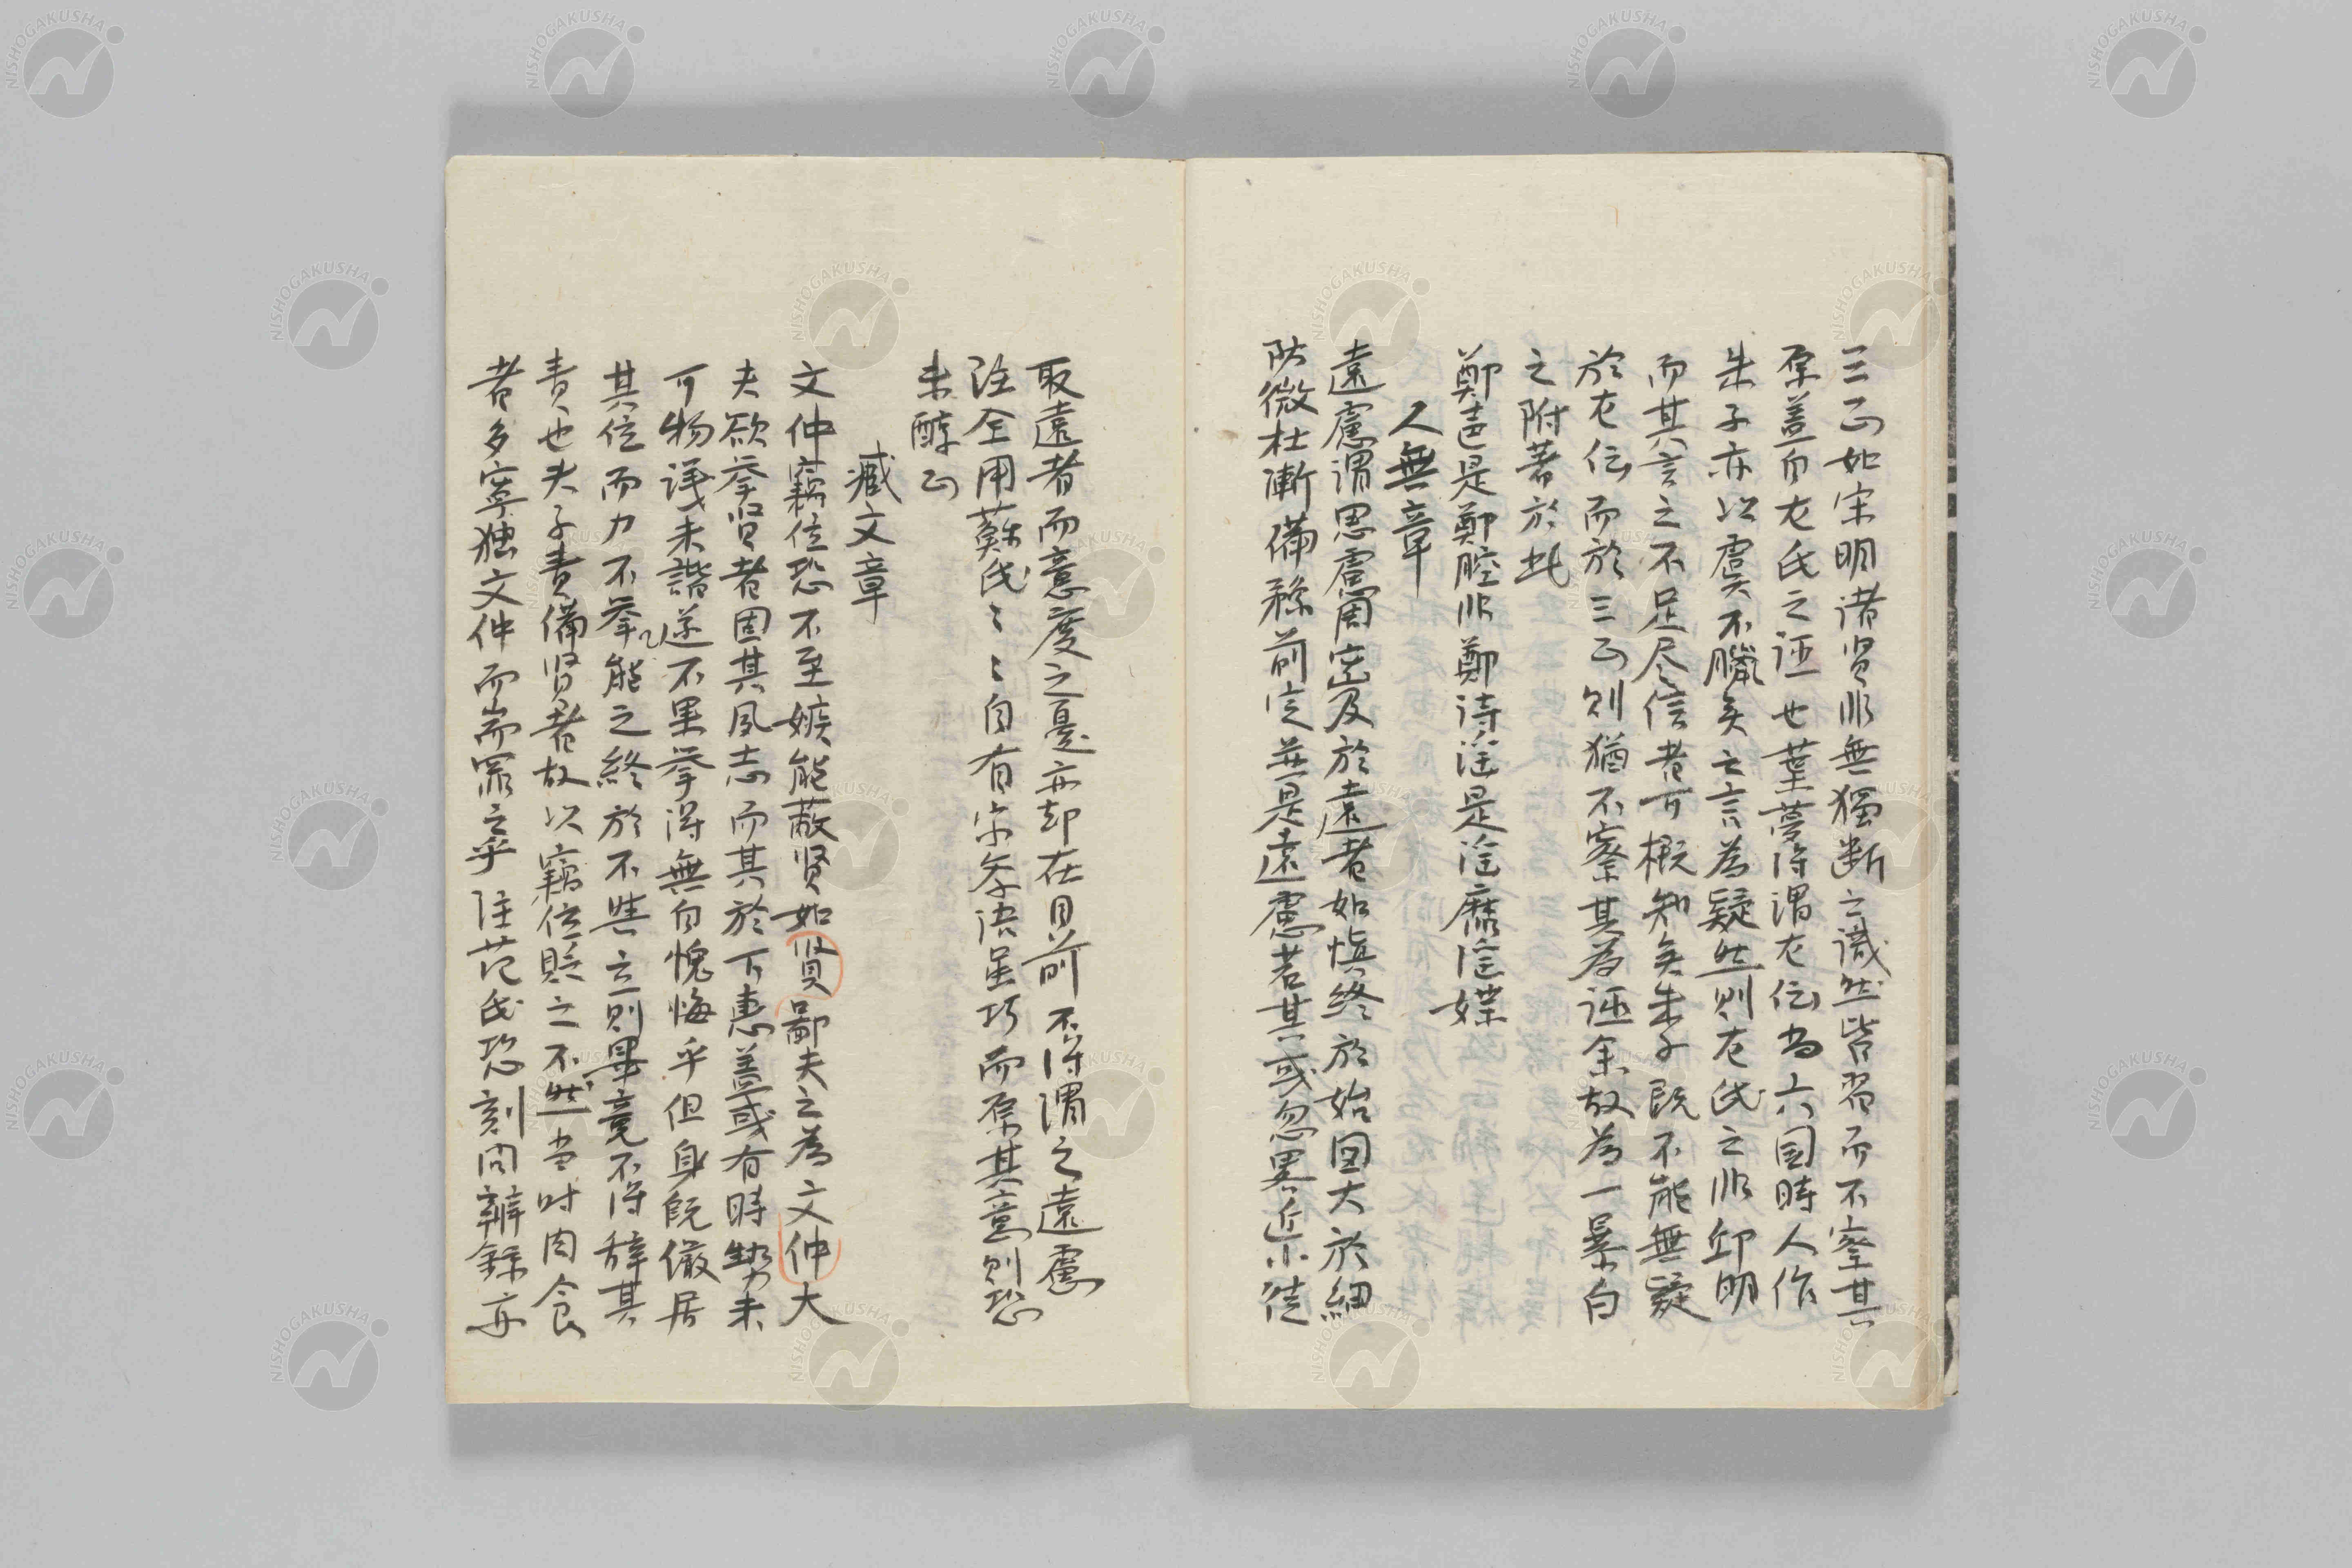 三正如宋明諸賢非無獨断之識然皆習而不察其
原蓋自左氏之誣也葉夢得謂左伝為六国時人作
朱子亦以虞不臘矣之言為疑然則左氏之非邱明
而其言之不足尽信者可概知矣朱子既不能無疑
於左伝而於三正則猶不察其為誣余故為一暴白
之附著於此
鄭声是鄭腔非鄭詩淫是淫靡淫媟
人無章
遠慮謂思慮周密及於遠者如慎終於始図大於細
防微杜漸備豫前定並是遠慮若其或忽畧近小徒
取遠者而意度之憂亦却在目前不得謂之遠慮
注全用蘇氏〻〻自有宗旨語虽巧而原其意則恐
未醇正
臧文章
文仲竊位恐不至嫉能蔽贤如贤鄙夫之為文仲大
夫欲挙贤者固其夙志而其於下惠蓋或有時勢未
可物議未諧遂不果挙得無自愧悔乎但身既儼居
其位而力不挙能之終於不與立則畢竟不得辞其
責也夫子責備贤者故以竊位貶之不然当时肉食
者多寧独文仲而耑罪之乎 注范氏恐刻問辨録亦
NISHOGAKUSHA